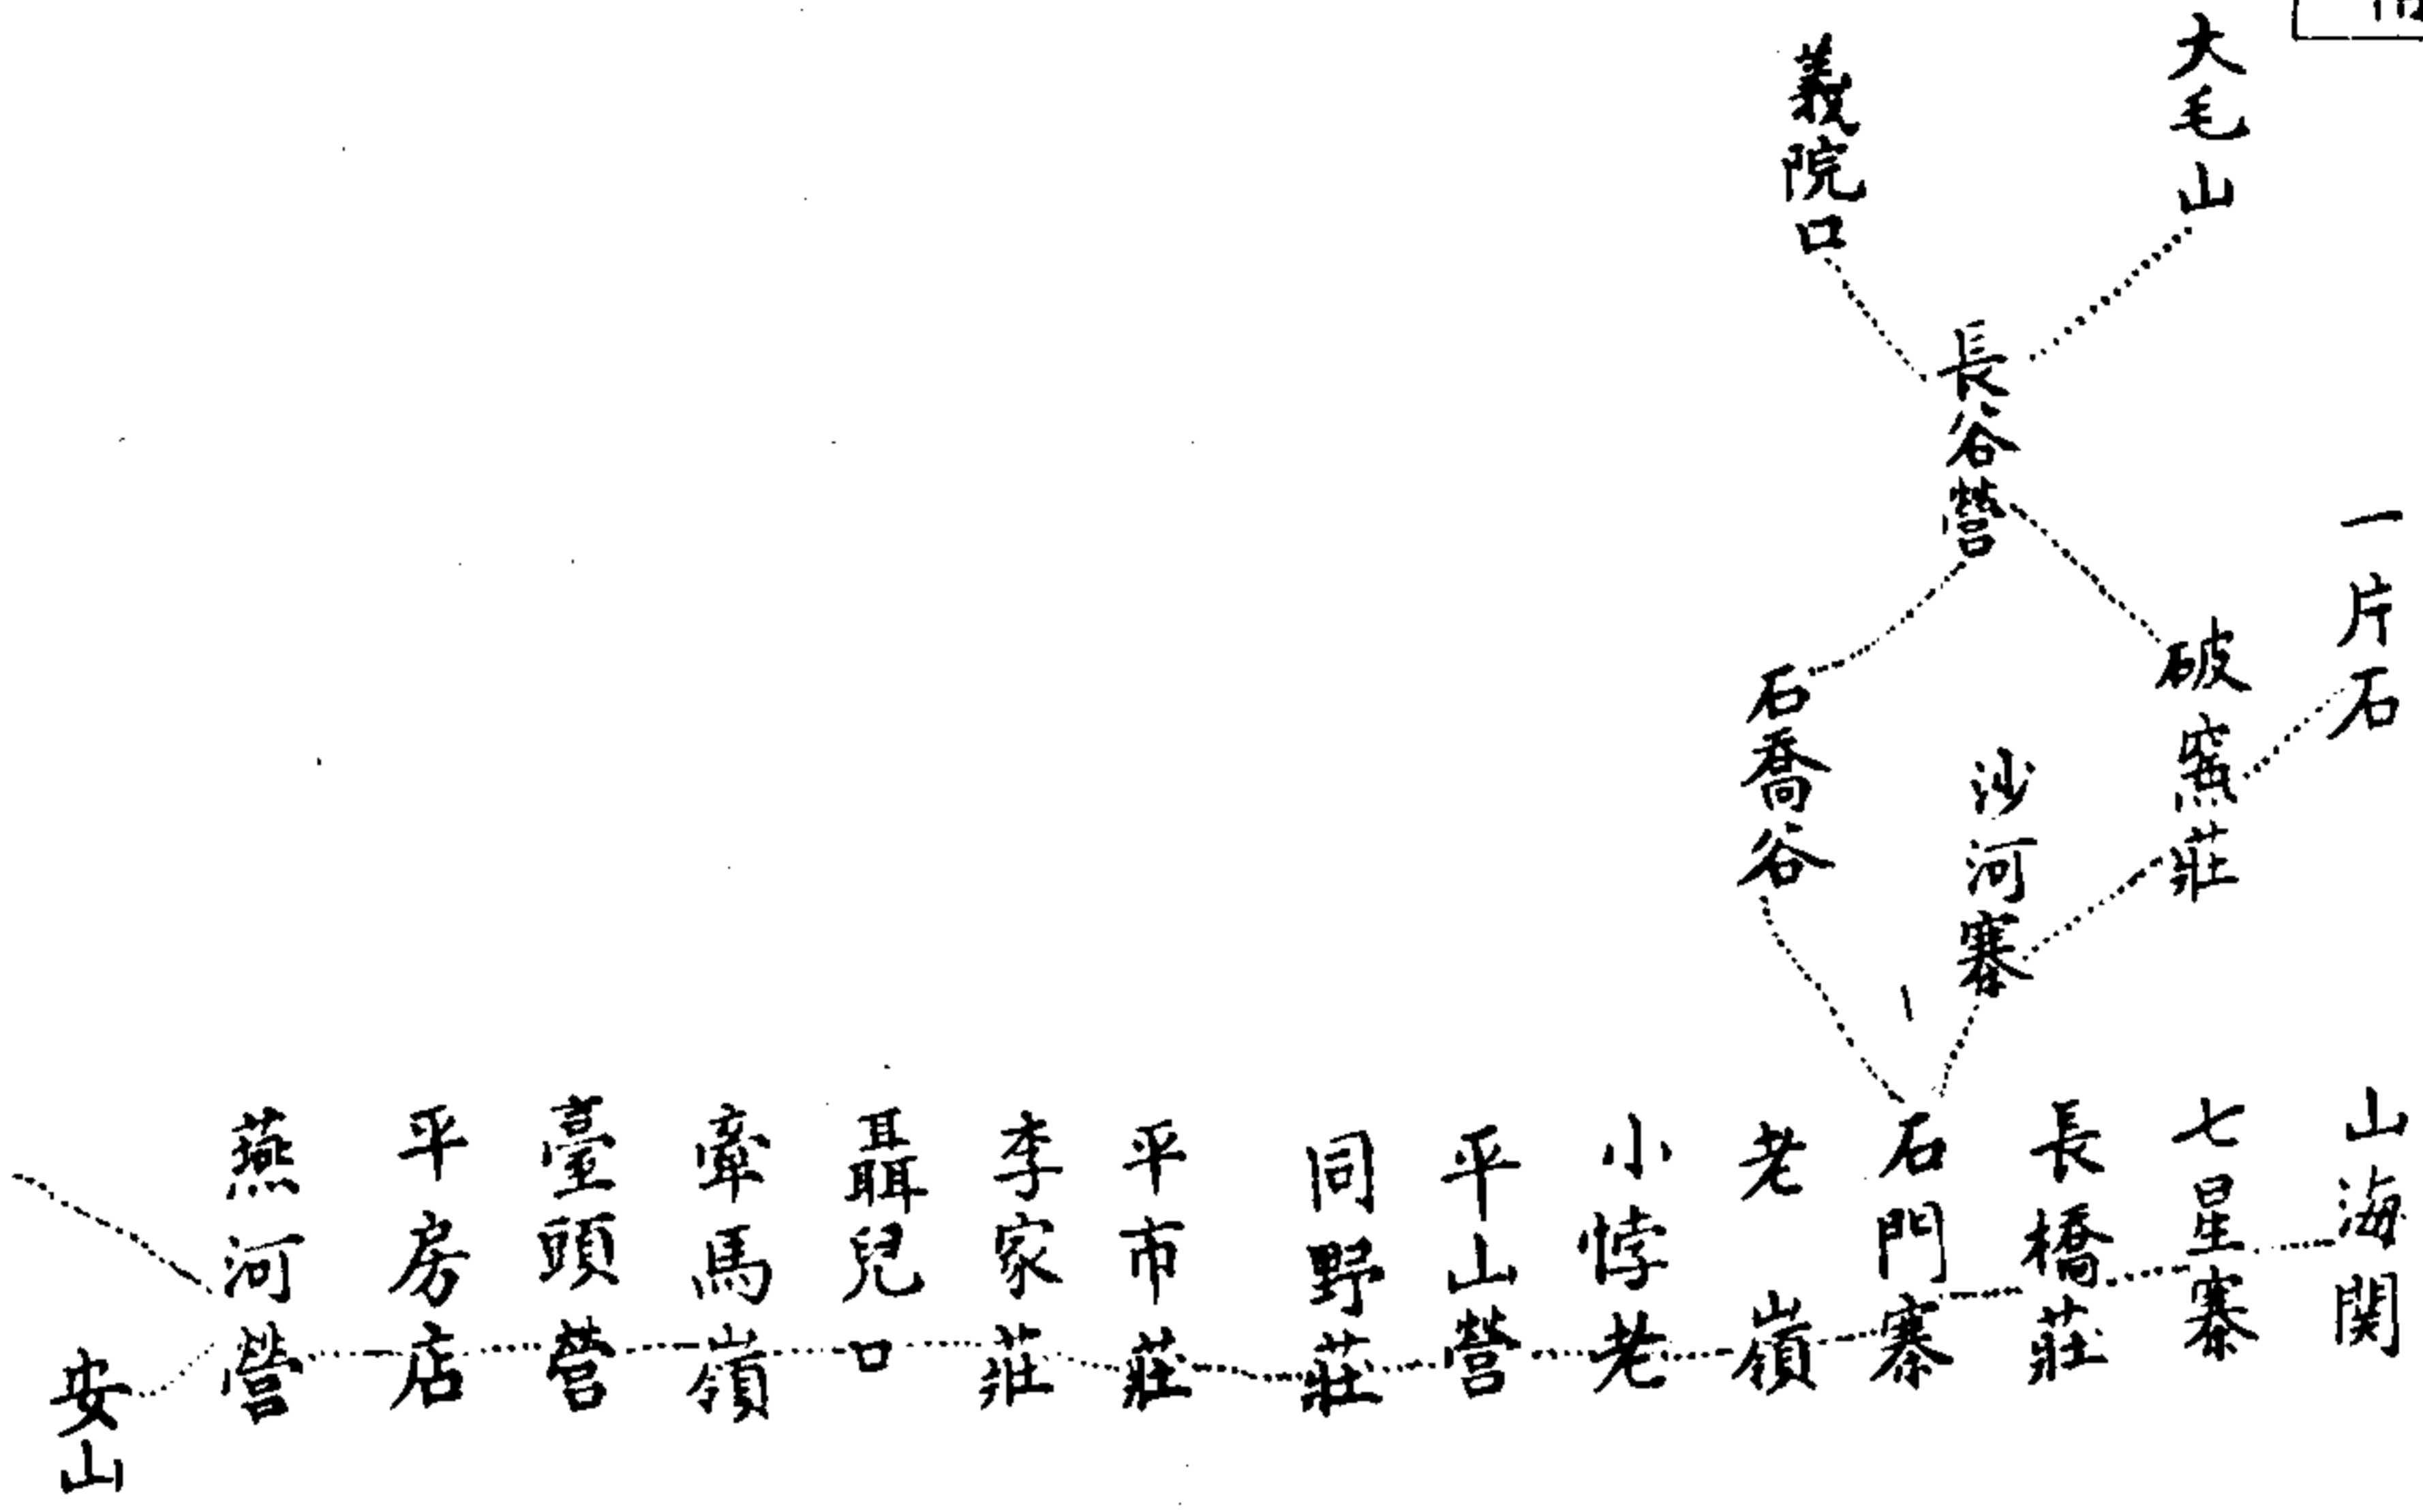 大毛山
義院口
長谷營
一片石
破窰莊
沙河寨
石喬谷
山海関
七星寨
長橋莊
石門寨
老嶺
小悖老
平山營
同野莊
平市莊
李家莊
聶兒口
牽馬嶺
臺頭營
平房店
燕河營
安山